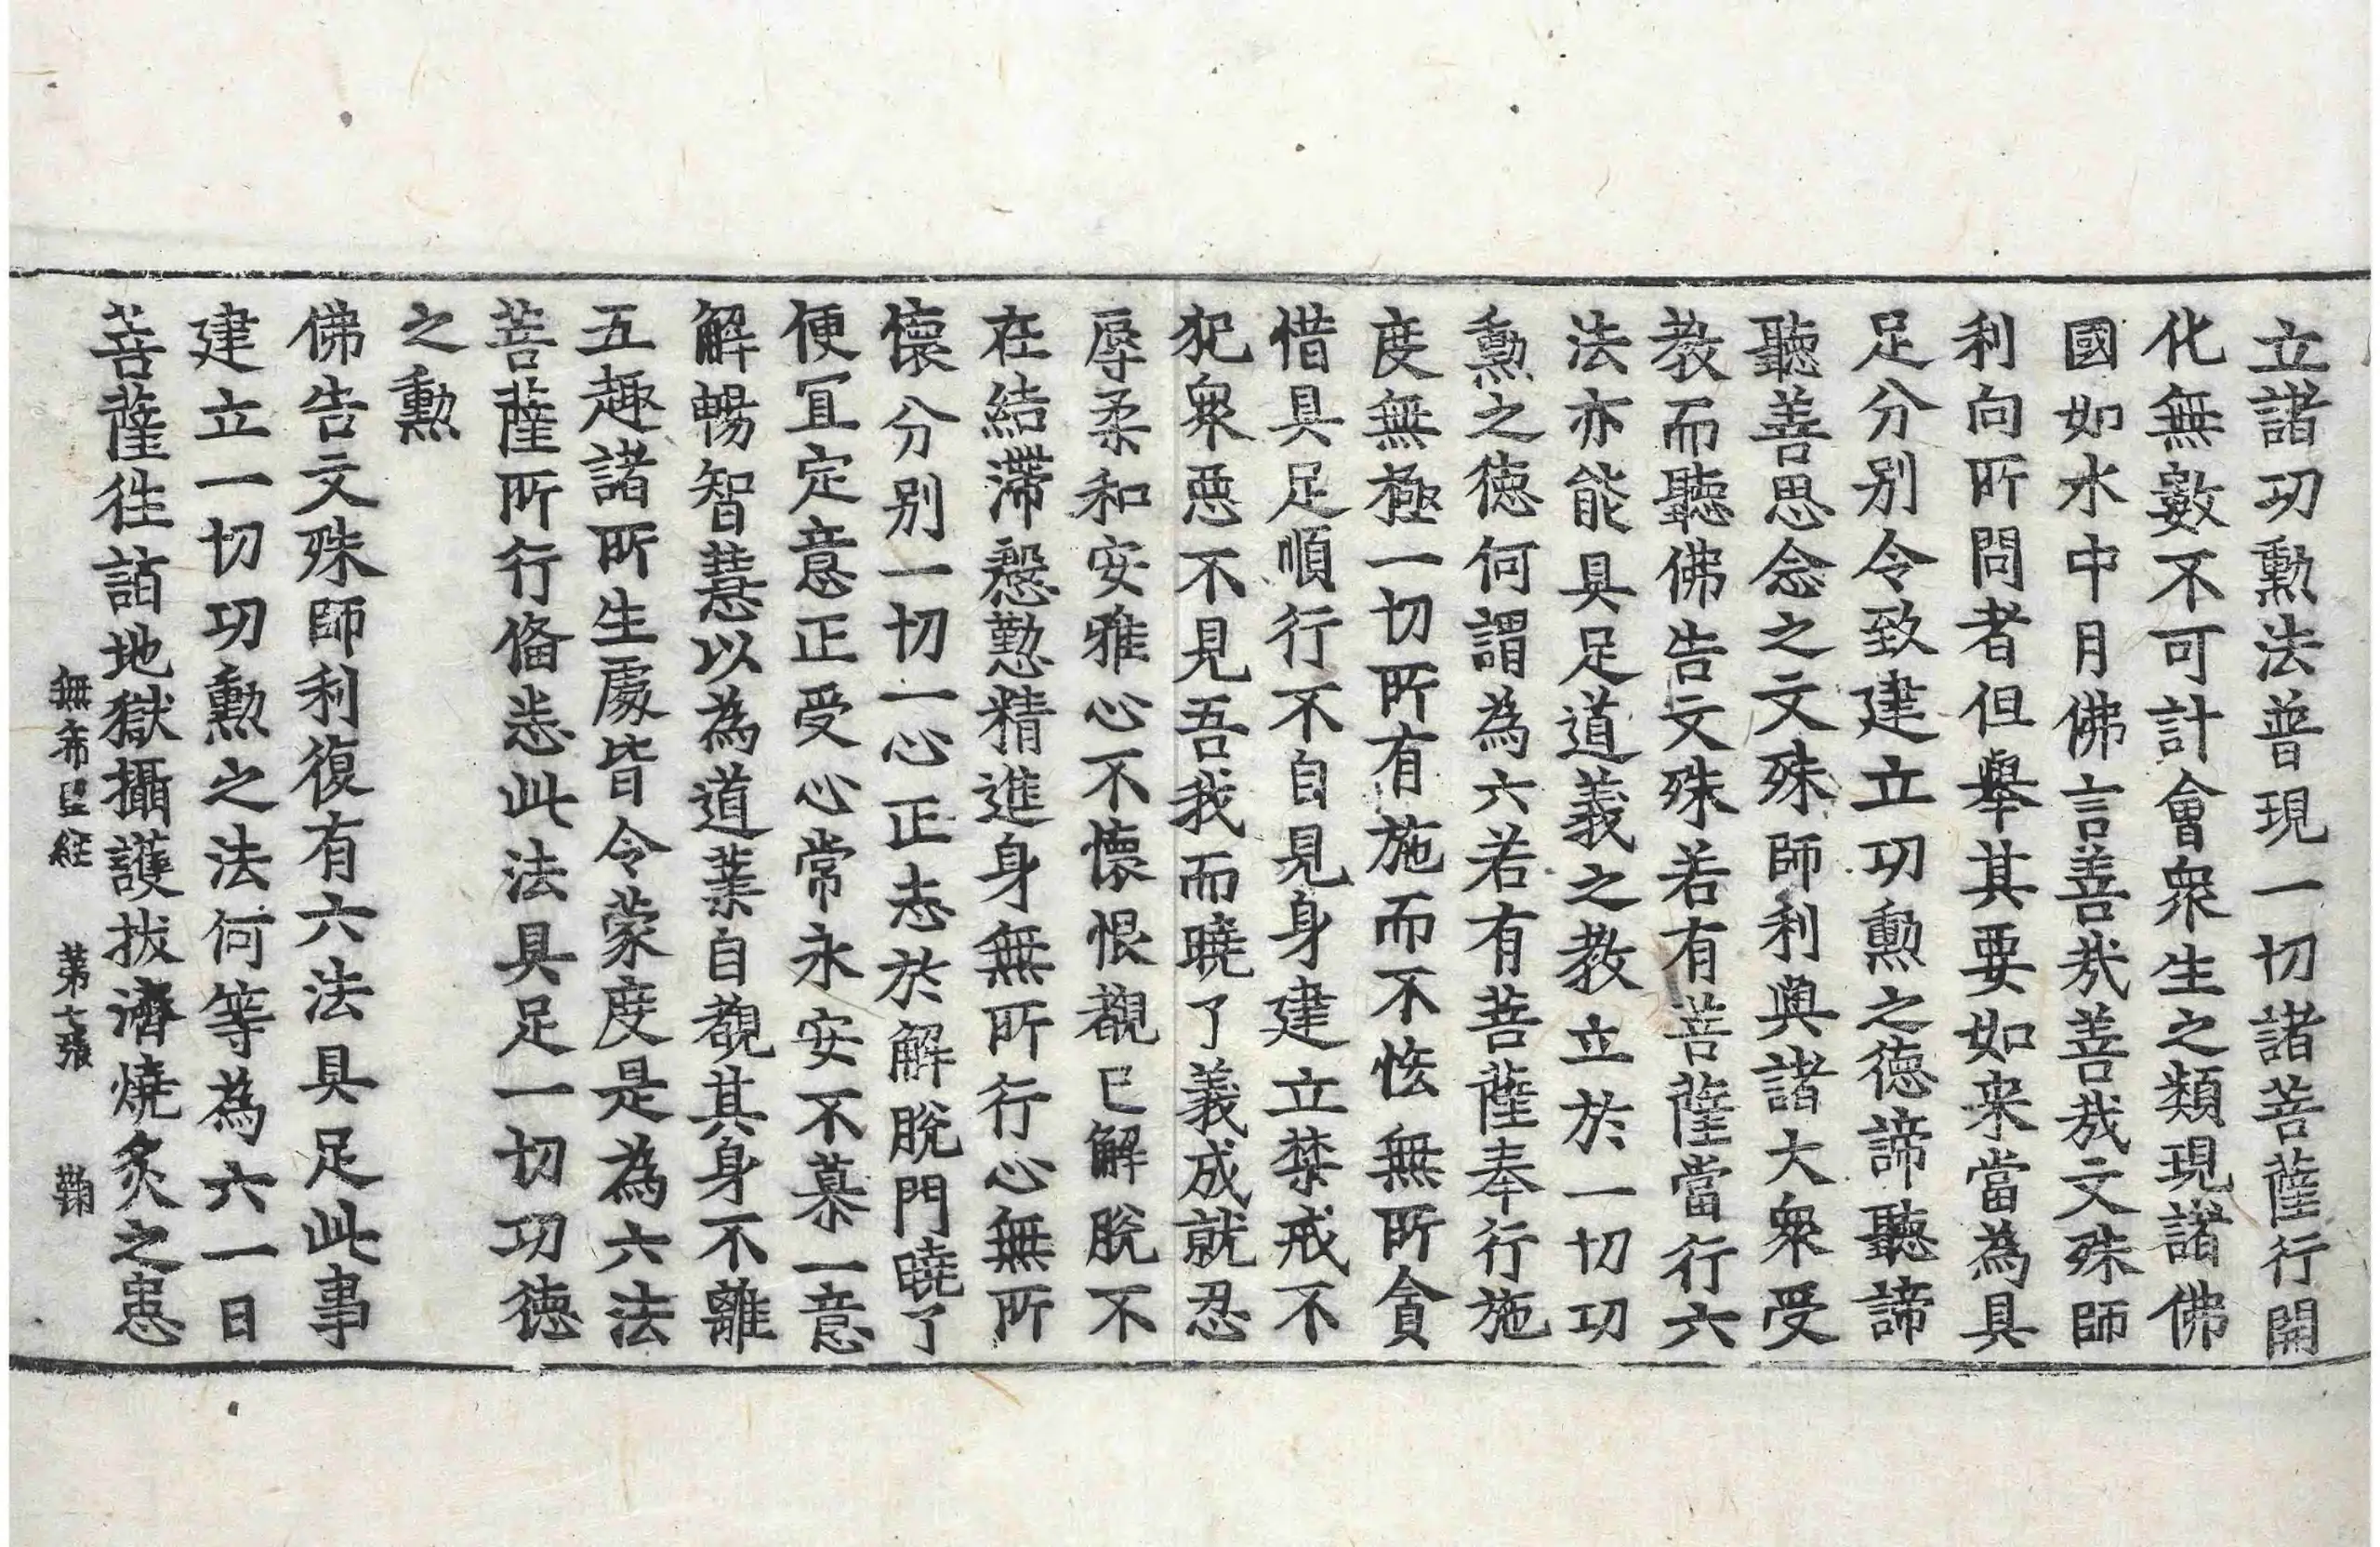 立諸功勲法普現一切諸菩薩行開
化無數不可計會衆生之類現諸佛
國如水中月佛言善㢤善㢤文殊師
利向所問者但舉其要如来當為具
足分别令致建立功勲之徳諦聽諦
聽善思念之文殊師利與諸大衆受
教而聽佛告文殊若有菩薩當行六
法亦能具足道義之教立於一切功
勲之徳何謂為六若有菩薩奉行施
度無極一切所有施而不恡無所貪
惜具足順行不自見身建立禁戒不
犯衆惡不見吾我而曉了義成就忍
辱柔和安雅心不懷恨觀已解脫不
在結滯慇懃精進身無所行心無所
懷分别一切一心正志於解脫門曉了
便冝定意正受心常永安不慕一意
解暢智慧以為道業自觀其身不離
五趣諸所生處皆令蒙度是為六法
菩薩所行俻悉此法具足一切功徳
之勲
佛告文殊師利復有六法具足此事
建立一切功勲之法何等為六一日
菩薩往詣地獄攝護拔濟燒炙之患
無希望経　第七張　鞠